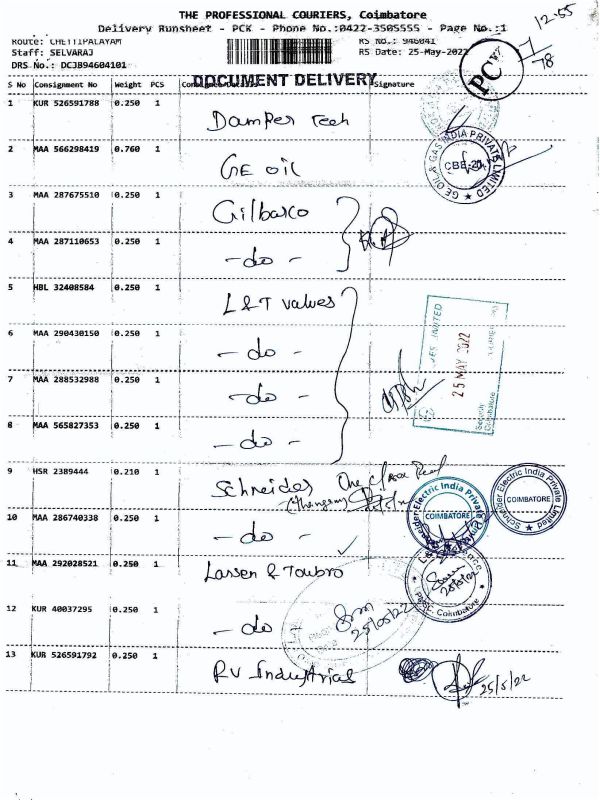 THE PROFESSIONAL COURIERS, Coimbatore
Delivery Runsheet - PCK - Phone No.:0422-3505555 - Page No.:1
12-55
Route: CHETTIPALAYAM
RS No.: 946041
Staff: SELVARAJ
RS Date: 25-May-2022
DRS No.: DCJB94604101
DOCUMENT DELIVERY
PCK
78
S No Consignment No Weight PCS Signature
1 KUR 526591788 0.250 1
Damper Tech
2 MAA 566298419 0.760 1 GE oil
GE OIL & GAS INDIA PRIVATE LIMITED
3 MAA 287675510 0.250 1 Gilbarco
4 MAA 287110653 0.250 1 - do -
5 HBL 32408584 0.250 1 L&T valves
6 MAA 290430150 0.250 1 - do -
7 MAA 288532988 0.250 1 - do -
8 MAA 565827353 0.250 1 - do -
25 MAY 2022
Security
Coimbatore
9 HSR 2389444 0.210 1 Schneider
Schneider Electric India Private Limited
COIMBATORE
Schneider Electric India Private Limited
COIMBATORE
10 MAA 286740338 0.250 1 - do -
11 MAA 292028521 0.250 1 Larsen & Toubro
25/5/22
Coimbatore
12 KUR 40037295 0.250 1 - do -
25/05/22
13 KUR 526591792 0.250 1 RV Industrias
25/5/22